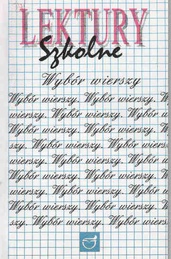 LEKTURY
Szkolne
Wybór wierszy
Wybór wierszy. Wybór wierszy. W
wierszy. Wybór wierszy. Wybór w
Wybór wierszy. Wybór wierszy. W
szy. Wybór wierszy. Wybór wiers
wierszy. Wybór wierszy. Wybór w
Wybór wierszy. Wybór wierszy. W
wierszy. Wybór wierszy. Wybór w
Wybór wierszy. Wybór wierszy. W
szy. Wybór wierszy. Wybór wiers